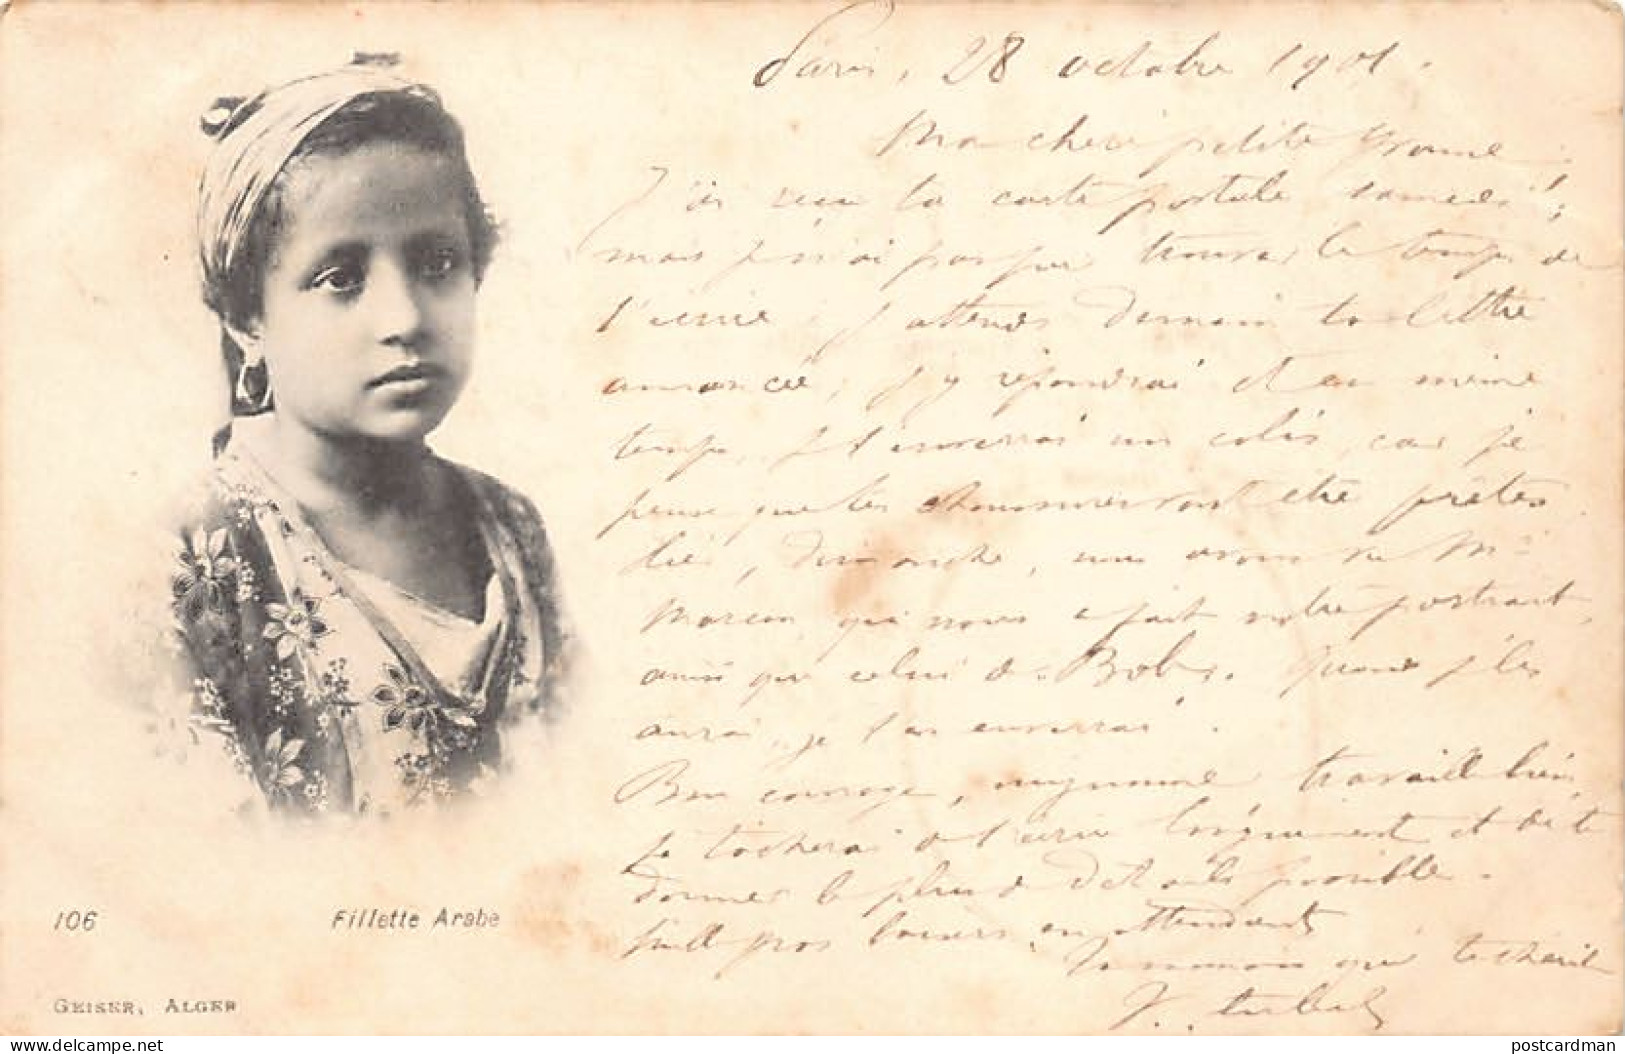 Paris, 28 octobre 1901.
Ma chérie petite
J'ai reçu ta carte postale samedi;
mais je n'ai pas pu trouver le temps de
l'écrire; j'attends demain ta lettre
annoncée, j'y répondrai et en même
temps, je t'enverrai un colis, car je
pense que les vont être prêtes
dimanche, nous avons vu Mr
Marcou qui nous a fait notre portrait,
ainsi que celui de Bob. Quand je les
aurai, je t'en enverrai.
Bon courage, mignonne travaille bien,
je tâcherai de t'écrire longuement et de te
donner le plus de détails possible.
Mille gros baisers en attendant
Ta maman qui te chérit
106
Fillette Arabe
GEISER, ALGER
postcardman